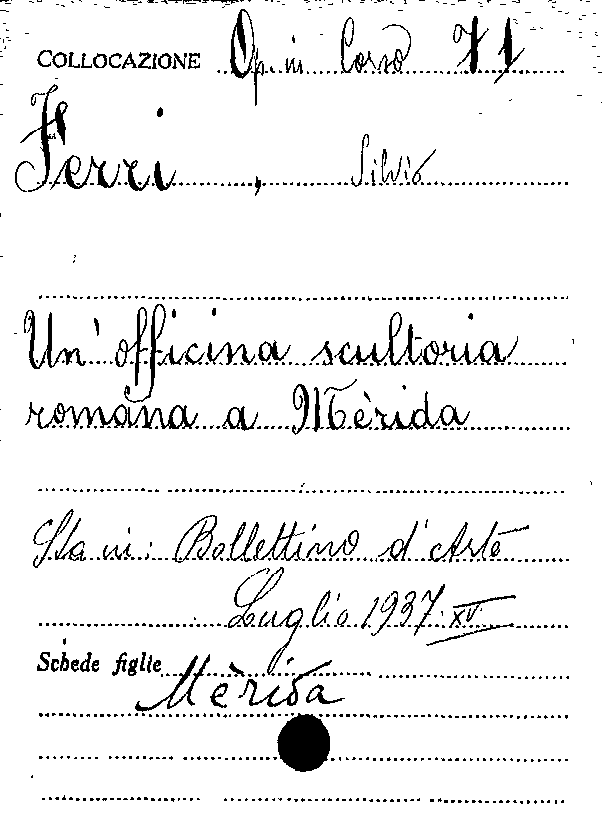 COLLOCAZIONE Op. in Corso 71
Ferri, Silvio
Un'officina scultoria
romana a Mèrida
Sta in: Bollettino d'Arte
Luglio 1937. XV.
Schede figlie
Mèrida